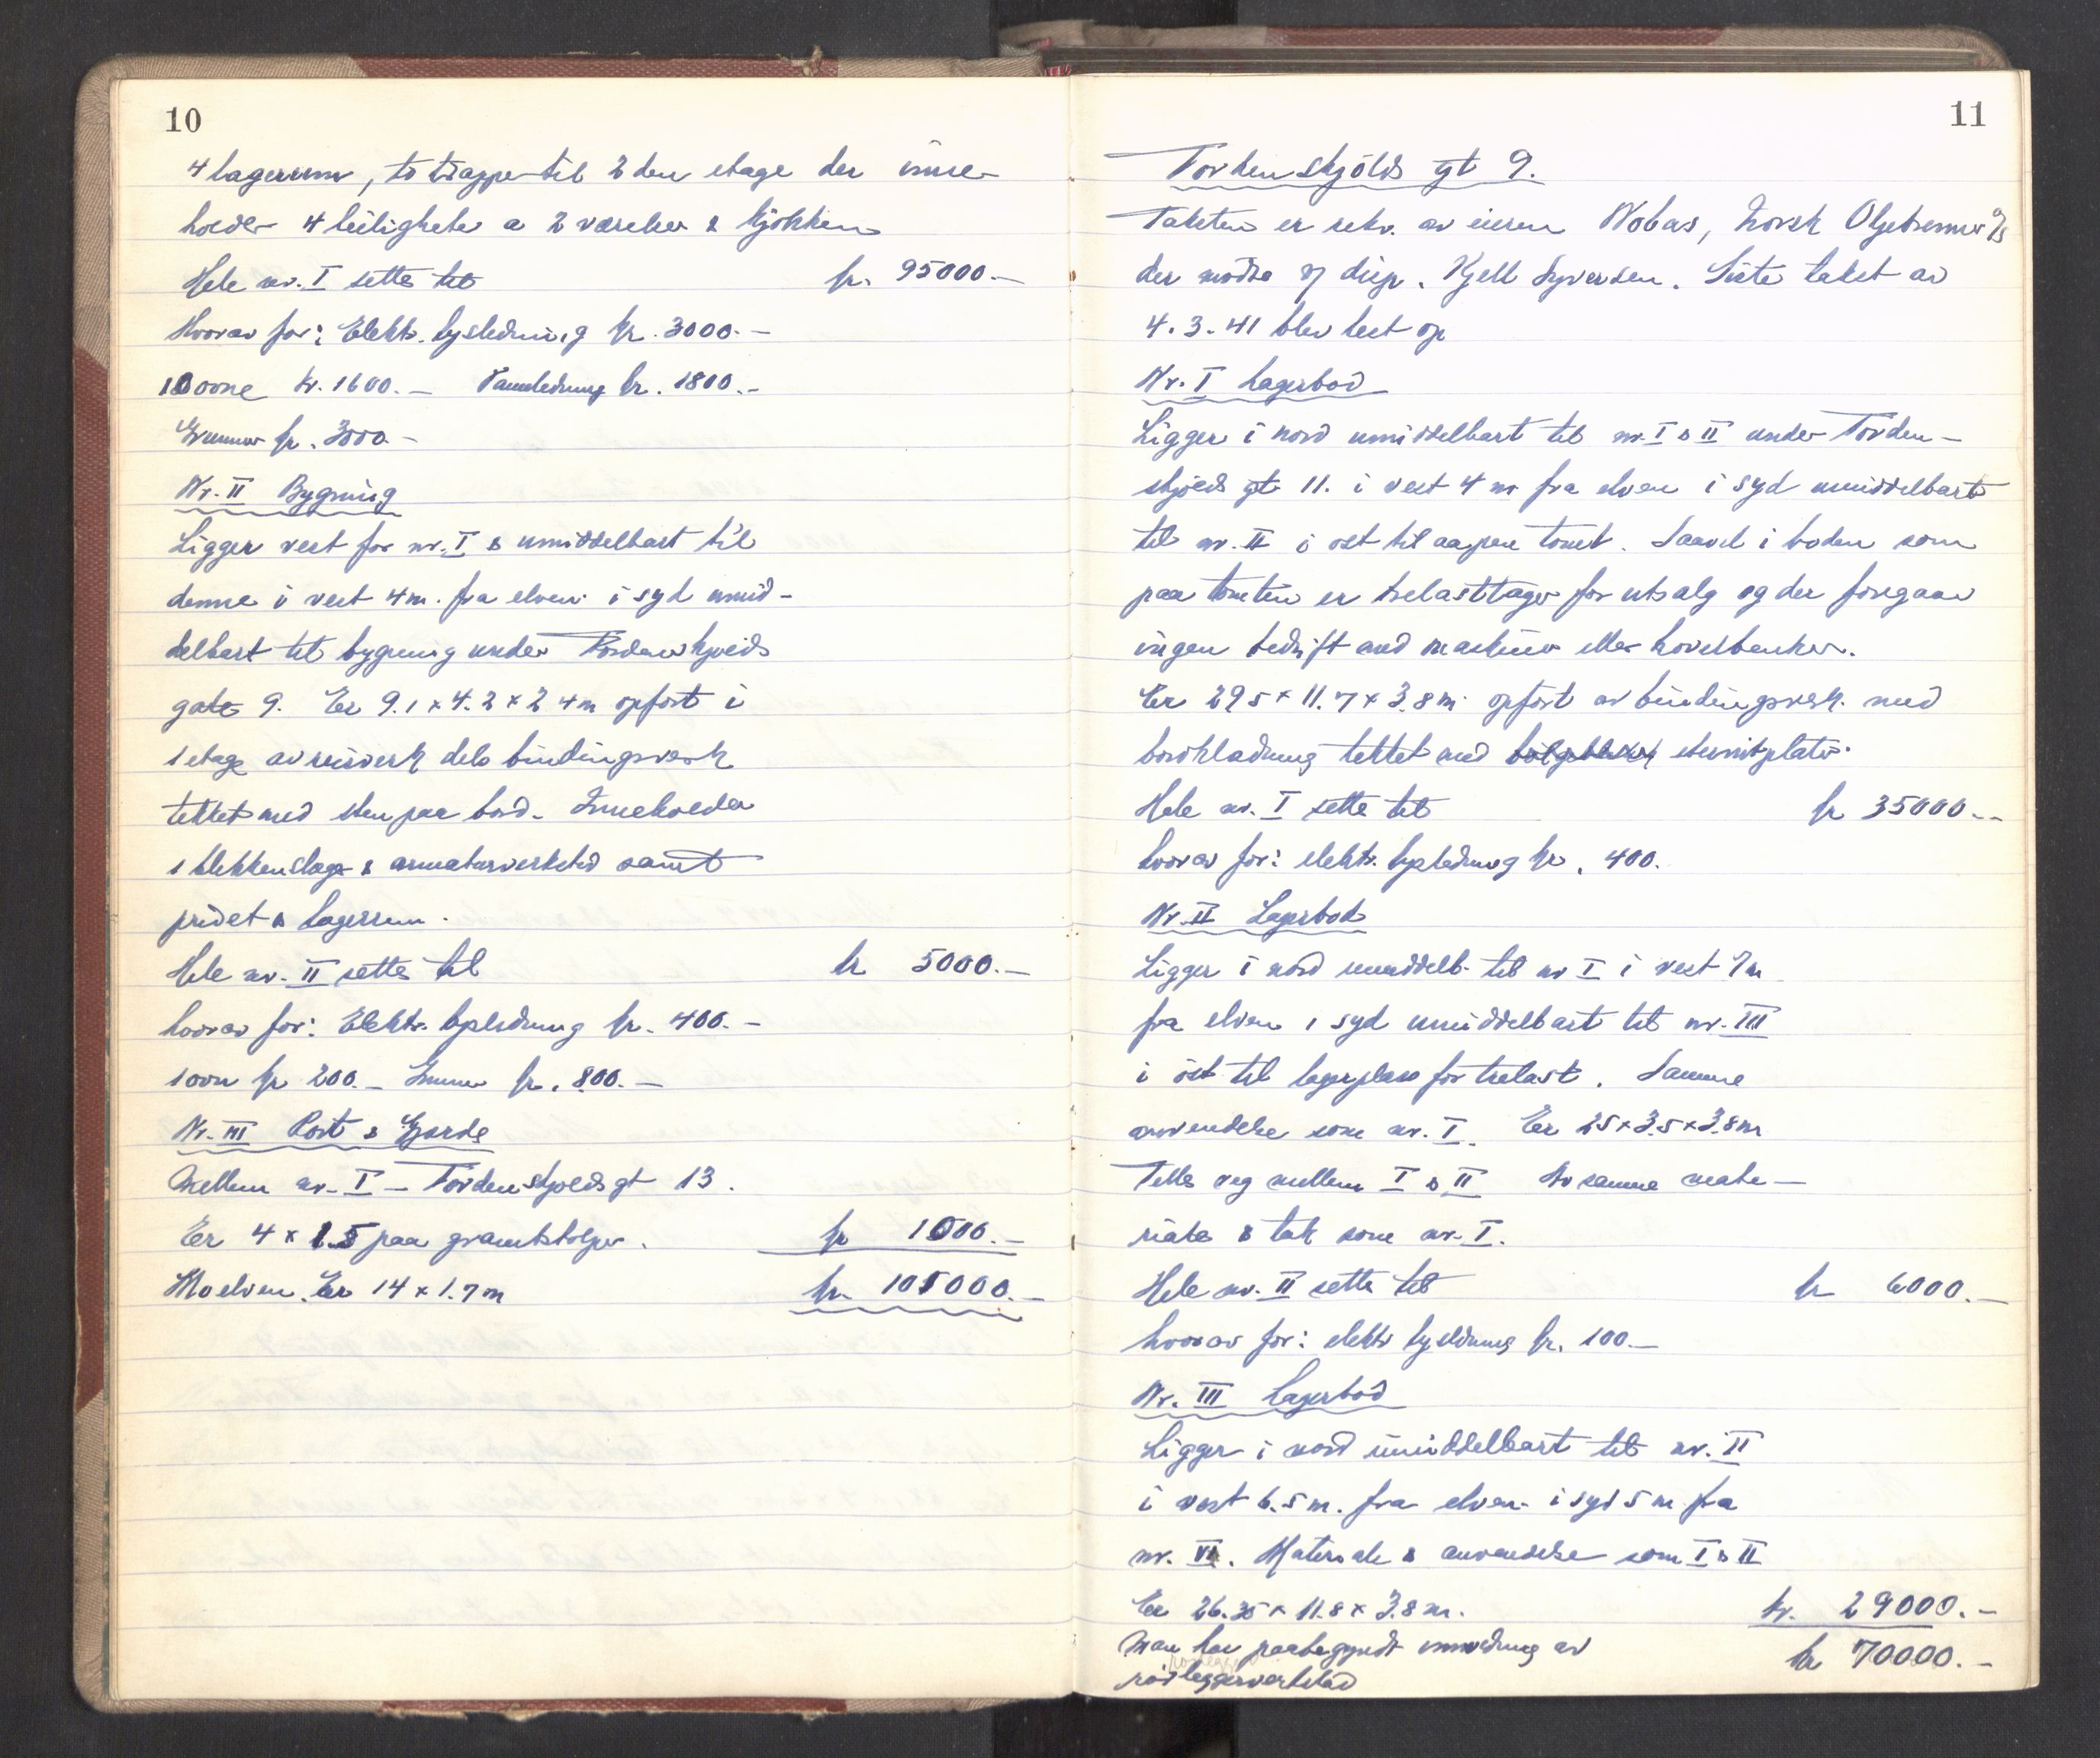 10
4 lagerrum, to trapper til 2den etage der inne-
holder 4 leiligheter a 2 værelser & kjøkken
Hele nr. I settes til kr. 95000.-
Hvorav for: Elektr. lysledning kr. 3000.-
10 ovne kr. 1600.- Vannledning kr. 1800.-
Grunnmur kr. 3000.-
Nr. II Bygning
Ligger vest for nr. I & umiddelbart til
denne i vest 4 m. fra elven i syd umid-
delbart til bygning under Tordenskjolds
gate 9. Er 9.1 x 4.2 x 2.4 m opført i
1 etage av reisverk dels bindingsverk
tekket med sten paa bord. Inneholder
1 blikkenslager & armaturverksted samt
privet & lagerrum.
Hele nr. II settes til kr 5000.-
hvorav for: Elektr. lysledning kr. 400.-
1 ovn kr 200.- Grmur kr. 800.-
Nr. III Port & Gjerde
Mellem nr. I - Tordenskjolds gt 13.
Er 4 x 1.5 paa granitstolper. kr 1000.-
Mo elven. Er 14 x 1.7 m kr. 101000.-
11
Tordenskjolds gt 9.
Taksten er rekv. av eieren Nobas, Norsk Oljebrenner A/S
der møtte v/ disp. Kjell Syversen. Siste takst av
4.3.41 blev lest op
Nr. I Lagerbod
Ligger i nord umiddelbart til nr. I & II under Torden-
skjolds gt 11. i vest 4 m fra elven i syd umiddelbart
til nr. II i øst til aapen tomt. Saavel i boden som
paa tomten er trelastlager for utsalg og der foregaar
ingen bedrift med maskiner eller høvelbenker.
Er 29.5 x 11.7 x 3.8 m opført av bindingsverk med
bordkledning tekket med bølgeblikk eternitplater.
Hele nr. I settes til kr 35000.-
hvorav for: elektr. lysledning kr. 400.
Nr. II Lagerbod
Ligger i nord umiddelb. til nr I i vest 7 m
fra elven i syd umiddelbart til nr. III
i øst til lagerplass for trelast. Samme
anvendelse som nr. I. Er 25 x 3.5 x 3.8 m
Felles veg mellem I & II Av samme mate-
riale & tak som nr. I.
Hele nr. II settes til kr 6000.-
hvorav for: elektr lysledning kr. 100.-
Nr. III Lagerbod
Ligger i nord umiddelbart til nr. II
i vest 6.5 m. fra elven i syd 5 m fra
nr. VI. Materiale & anvendelse som I & II
Er 26.35 x 11.8 x 3.8 m. kr. 29000.-
Man har paabegyndt innredning av kr 70000.-
rørleggerverksted